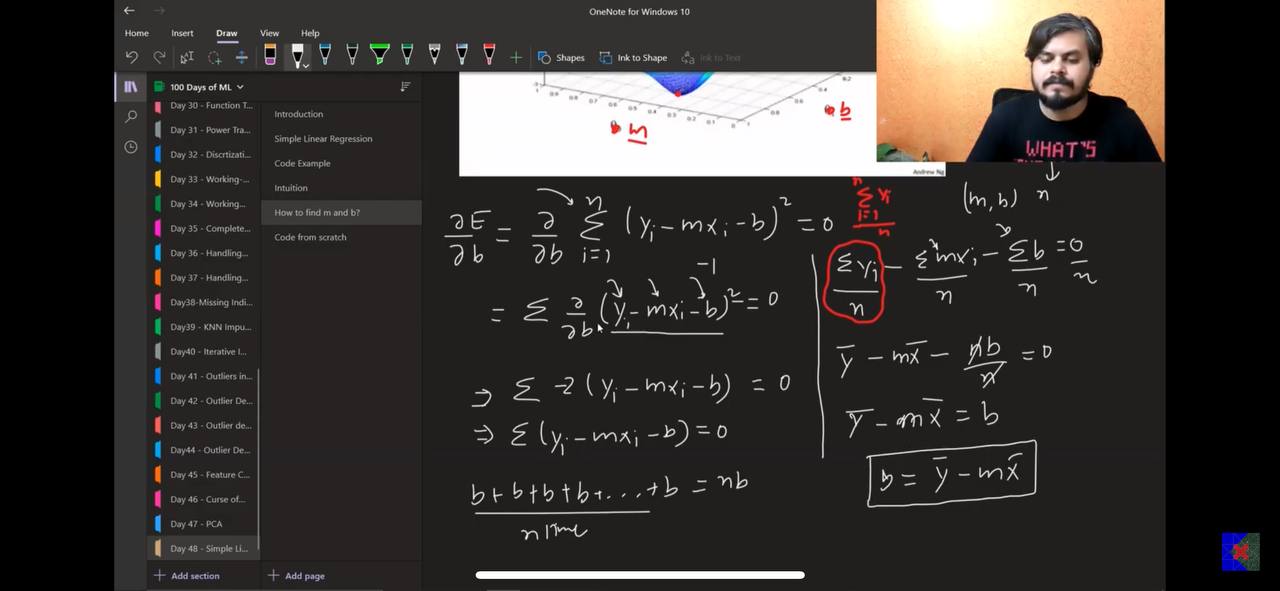 OneNote for Windows 10
Home Insert Draw View Help
Shapes Ink to Shape Ink to Text
100 Days of ML
Day 30 - Function T...
Day 31 - Power Tra...
Day 32 - Discrtizati...
Day 33 - Working-...
Day 34 - Working...
Day 35 - Complete...
Day 36 - Handling...
Day 37 - Handling...
Day38-Missing Indi...
Day39 - KNN Impu...
Day40 - Iterative I...
Day 41 - Outliers in...
Day 42 - Outlier De...
Day 43 - Outlier de...
Day44 - Outlier De...
Day 45 - Feature C...
Day 46 - Curse of...
Day 47 - PCA
Day 48 - Simple Li...
Add section
Introduction
Simple Linear Regression
Code Example
Intuition
How to find m and b?
Code from scratch
Add page
m
b
Andrew Ng
WHAT'S
∂E/∂b = ∂/∂b Σ i=1 n (yi - mxi - b)² = 0
-1
= Σ ∂/∂b (yi - mxi - b)² = 0
⇒ Σ -2 (yi - mxi - b) = 0
⇒ Σ (yi - mxi - b) = 0
b + b + b + b + . . . . + b = nb
n time
n Σ i=1 yi / n
(m, b) n
Σyi/n - Σmxi/n - Σb/n = 0/n
y̅ - mx̅ - nb/n = 0
y̅ - mx̅ = b
b = y̅ - mx̅